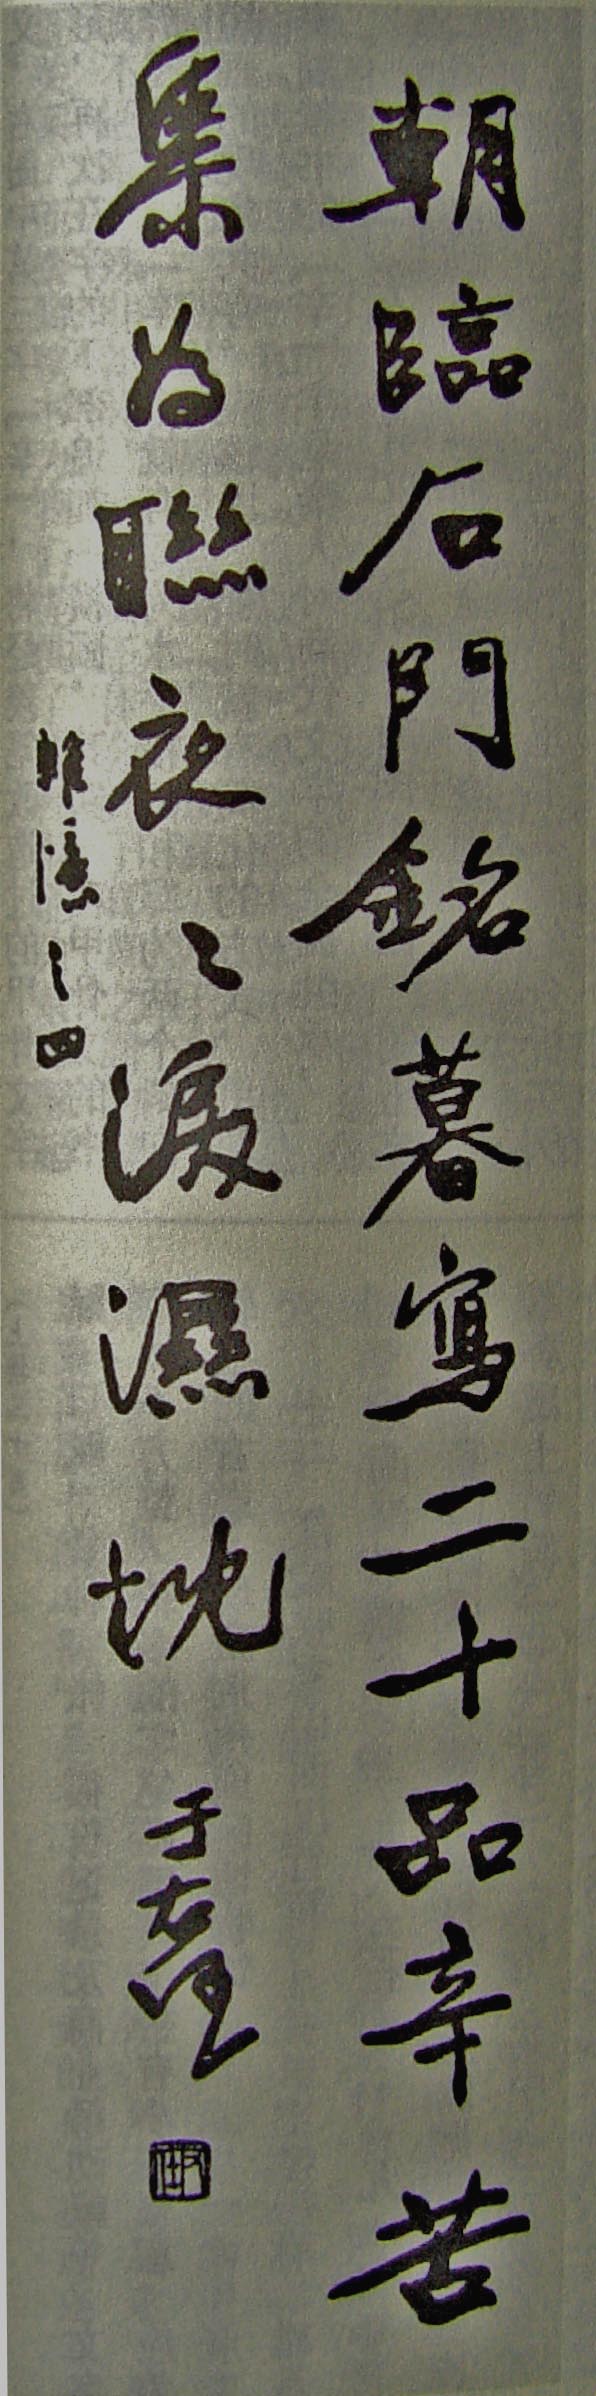 朝臨石門銘暮寫二十品辛苦
集為聯夜〻淚濕枕
雜憶之四
于右任